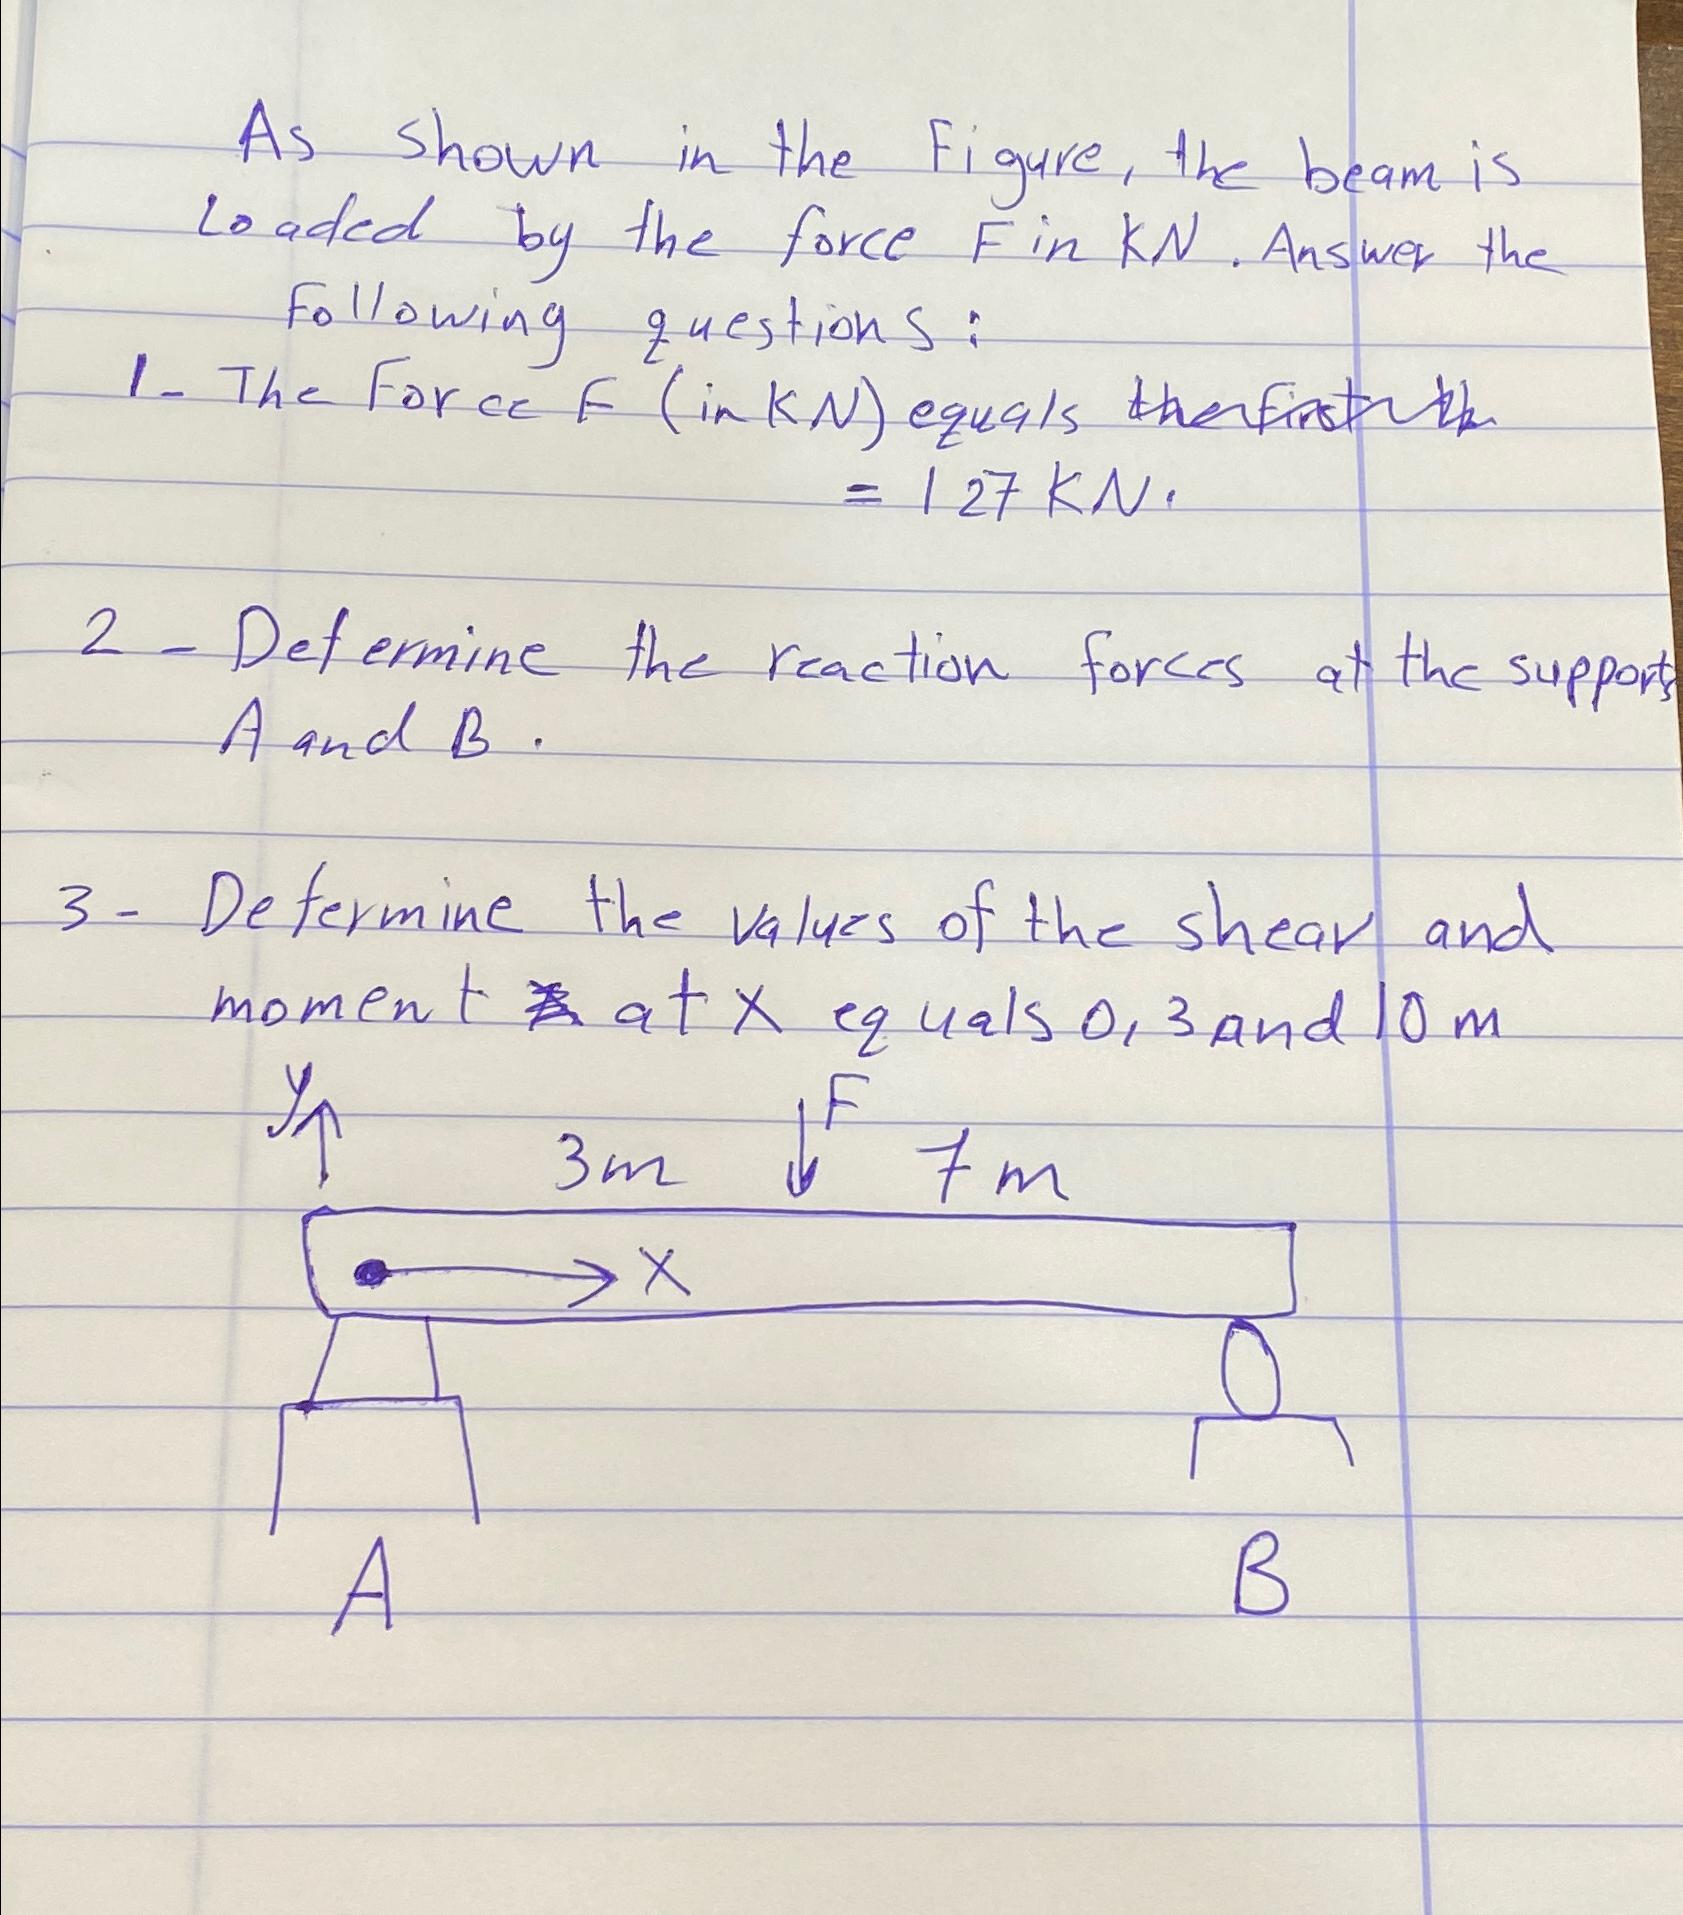 As shown in the Figure, the beam is
Loaded by the force F in KN. Answer the
Following questions:
1- The Force F (in KN) equals
= 127 KN.
2 - Determine the reaction forces at the supports
A and B.
3- Determine the values of the shear and
moment at X equals 0, 3 and 10 m
y F
3m 7m
X
A B